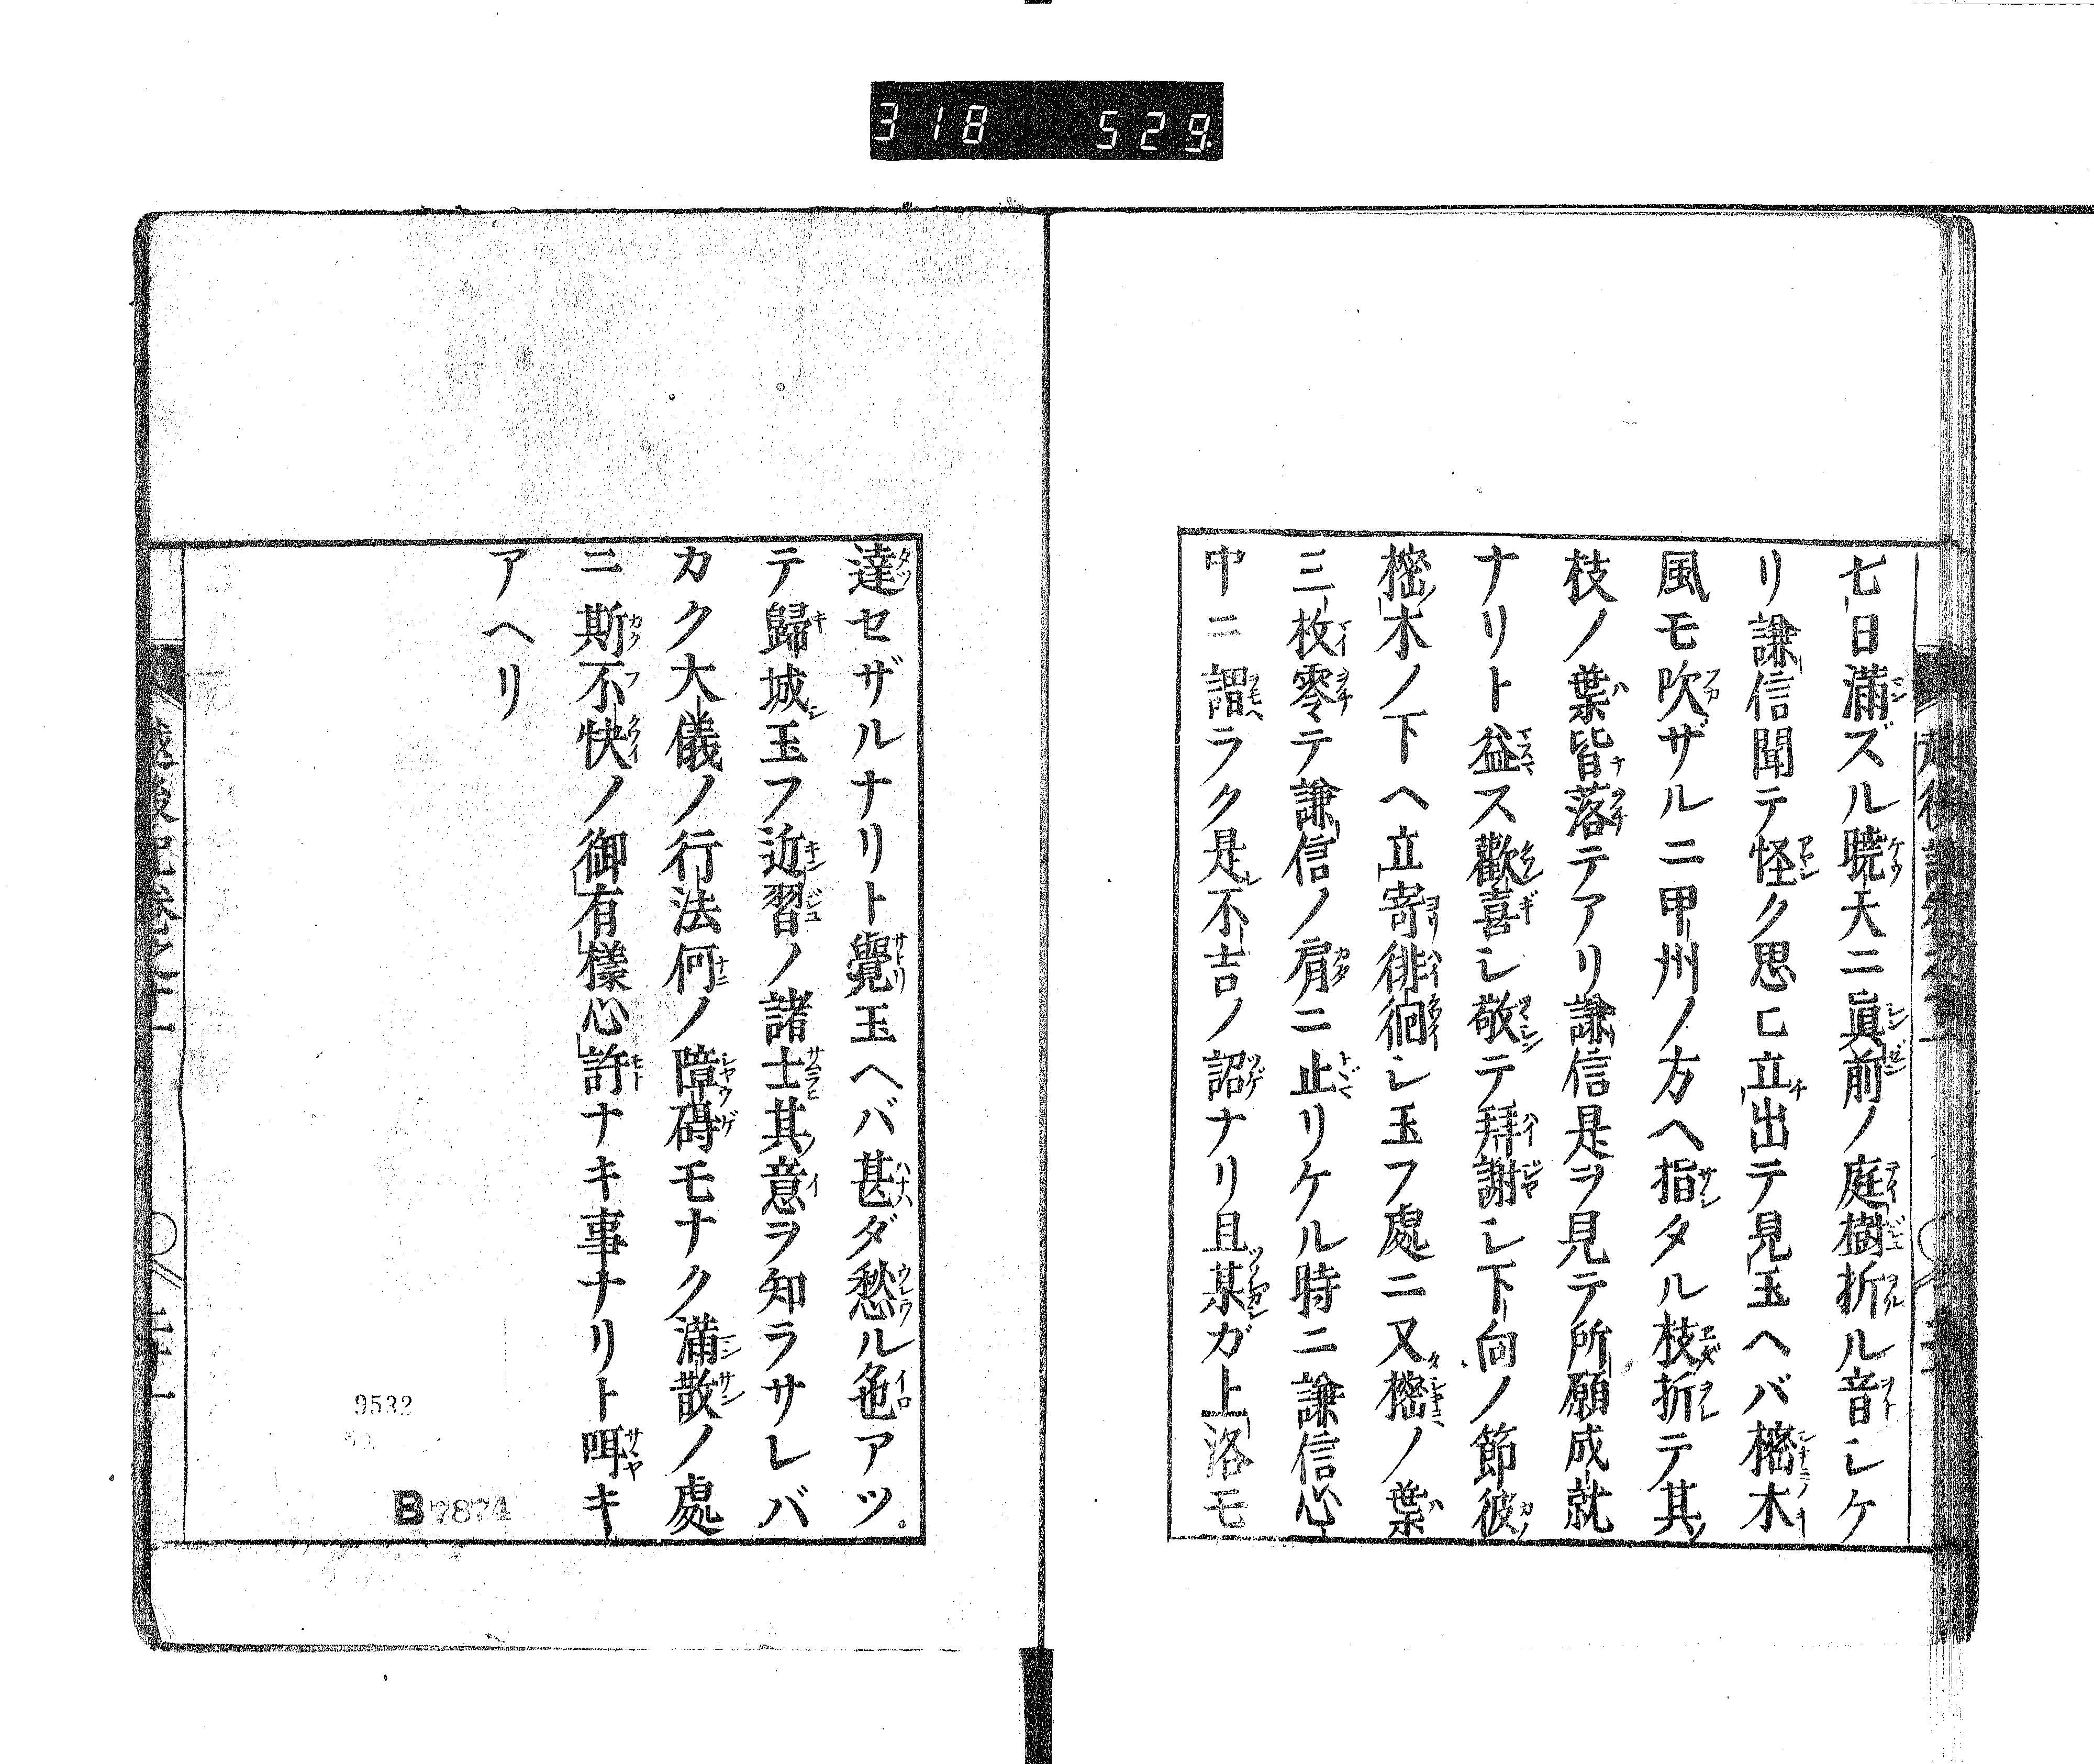 318 529
七日滿ズル曉天ニ眞前ノ庭樹折ル音シケ
リ謙信聞テ怪ク思ヒ立出テ見玉ヘバ樒木
風モ吹ザルニ甲州ノ方ヘ指タル枝折テ其
枝ノ葉皆落テアリ謙信是ヲ見テ所願成就
ナリト益ス歡喜シ敬テ拜謝シ下向ノ節彼
樒木ノ下ヘ立寄徘徊シ玉フ處ニ又樒ノ葉
三枚零テ謙信ノ肩ニ止リケル時ニ謙信心
中ニ謂ラク是不吉ノ詔ナリ且某ガ上洛モ
達セザルナリト覺玉ヘバ甚ダ愁ル色アツ
テ歸城シ玉フ近習ノ諸士其意ヲ知ラサレバ
カク大儀ノ行法何ノ障碍モナク滿散ノ處
ニ斯不快ノ御有樣心許ナキ事ナリト咡キ
アヘリ
越後記卷之十一
9532
B 7874